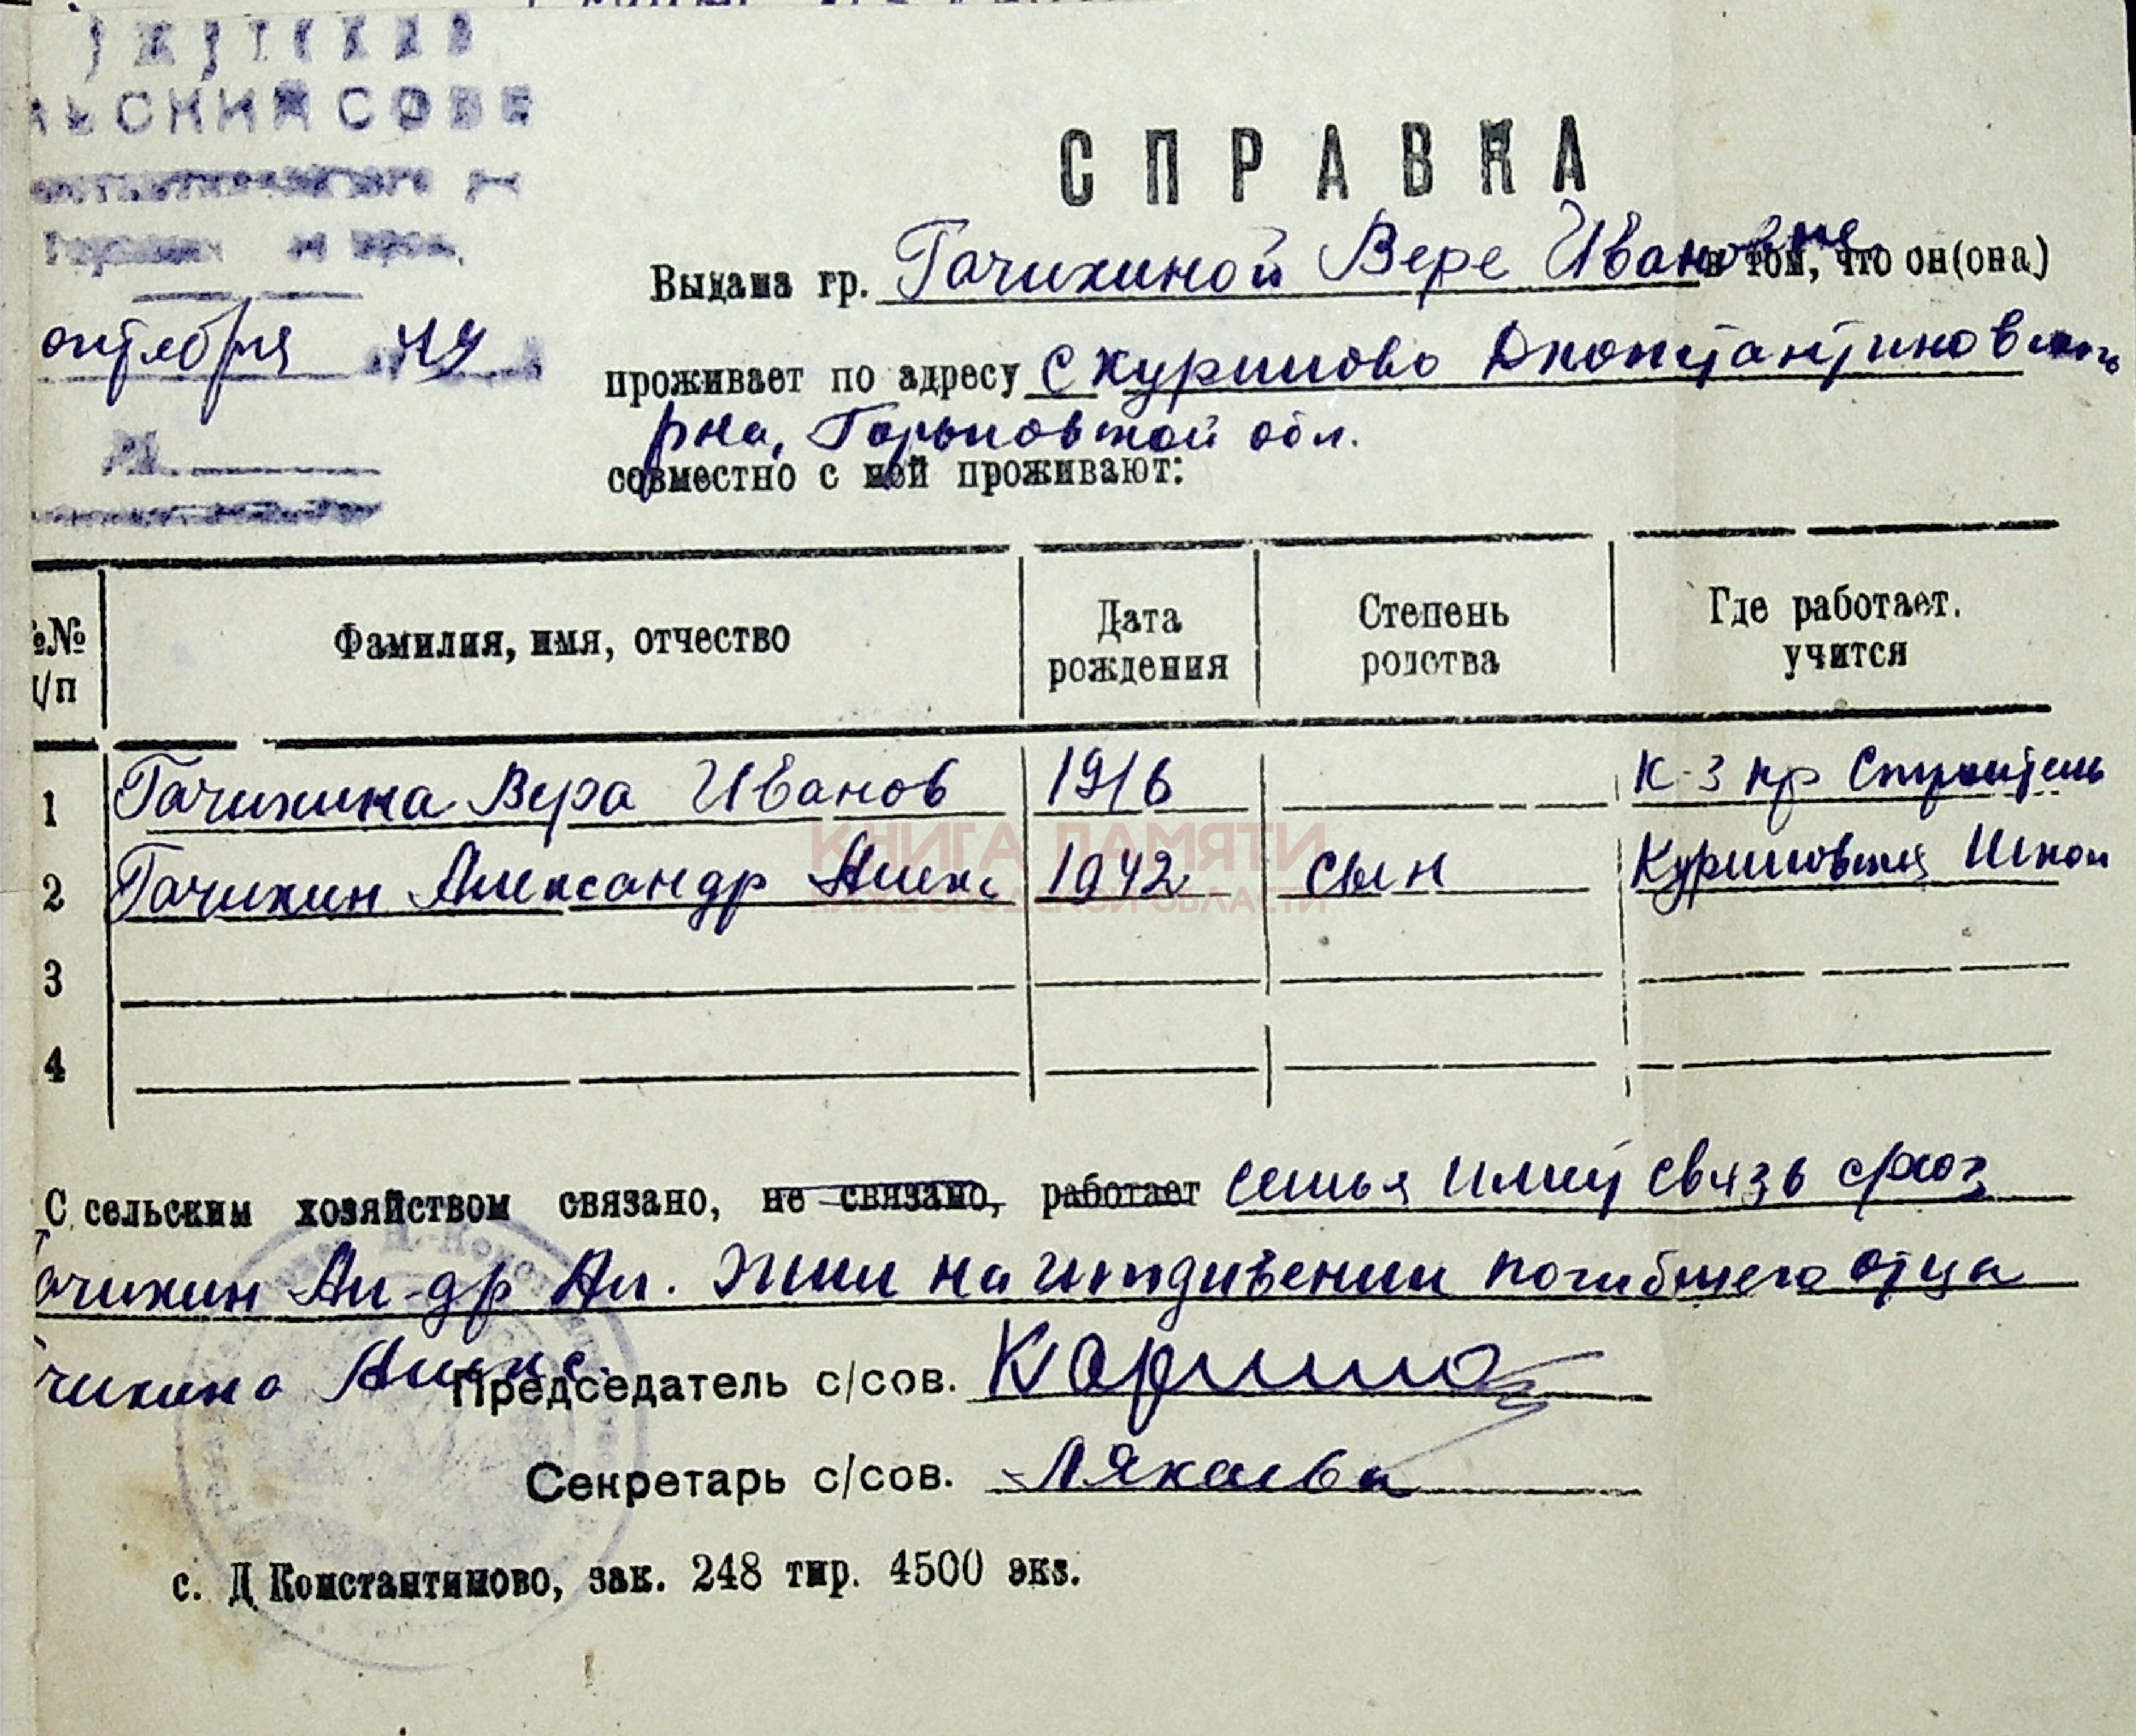 СПРАВКА
Выдана гр. Гачихиной Вере Ивановне в том, что он(она)
октября
проживает по адресу с Куришово Дконстантиновского
рна, Горьковской обл.
совместно с ней проживают:
№№ п/п Фамилия, имя, отчество Дата рождения Степень родства Где работает. учится
1 Гачихина Вера Иванов 1916 К-з пр Строитель
2 Гачихин Александр Алекс 1942 сын Школ
КНИГА ПАМЯТИ
НИЖЕГОРОДСКОЙ ОБЛАСТИ
3
4
С сельским хозяйством связано, не связано, работает семья имеет связь
Гачихин Ал-др Ал. на иждивении погибшего отца
Алекс. Председатель с/сов.
Секретарь с/сов.
с. Д Константиново, зак. 248 тир. 4500 экз.